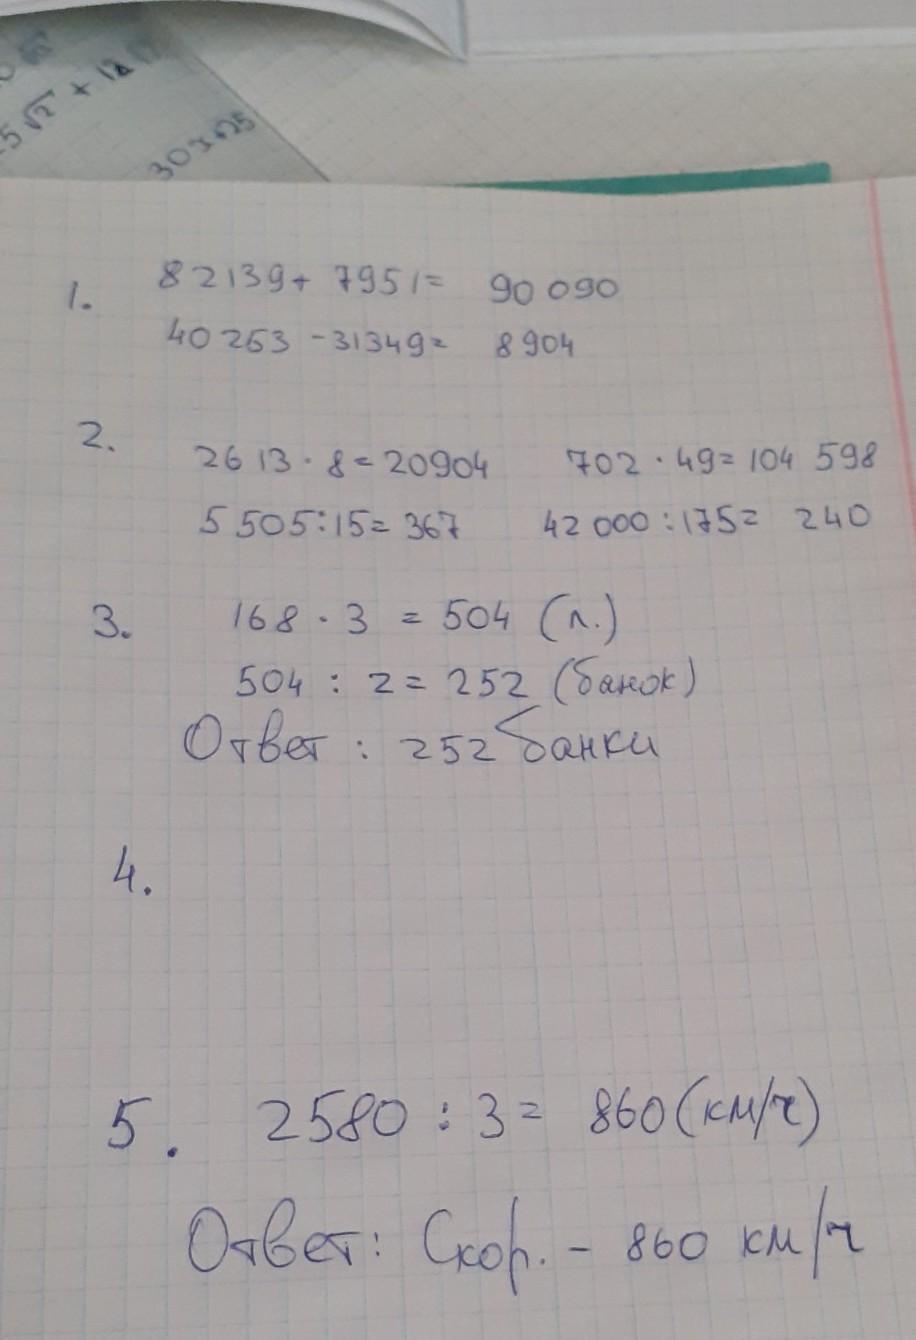 5√2 + 12
30x+25
1. 82139+ 7951= 90 090
40263 - 31349= 8904
2. 2613 · 8 = 20904 702 · 49 = 104 598
5 505 : 15 = 367 42 000 : 175 = 240
3. 168 · 3 = 504 (л.)
504 : 2 = 252 (банок)
Ответ : 252 банки
4.
5. 2580 : 3 = 860 (км/ч)
Ответ: Скор. - 860 км/ч